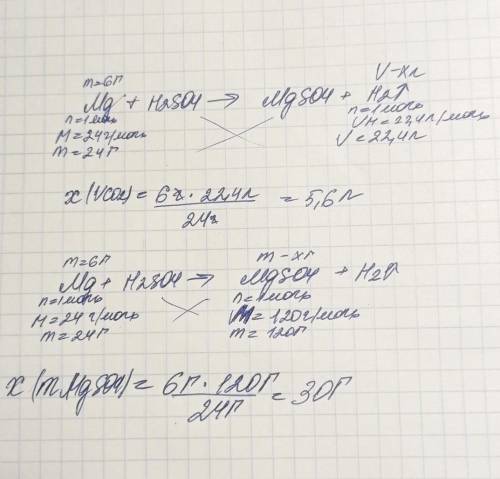 m=6г V-хл
Mg + H2SO4 → MgSO4 + H2↑
n=1моль n=1моль
M=24г/моль VM=22,4л/моль
m=24г V=22,4л
x(VCO2)= 6г·22,4л / 24г = 5,6л
m=6г m-хг
Mg + H2SO4 → MgSO4 + H2↑
n=1моль n=1моль
M=24г/моль M=120г/моль
m=24г m=120г
x(mMgSO4)= 6г·120г / 24г = 30г